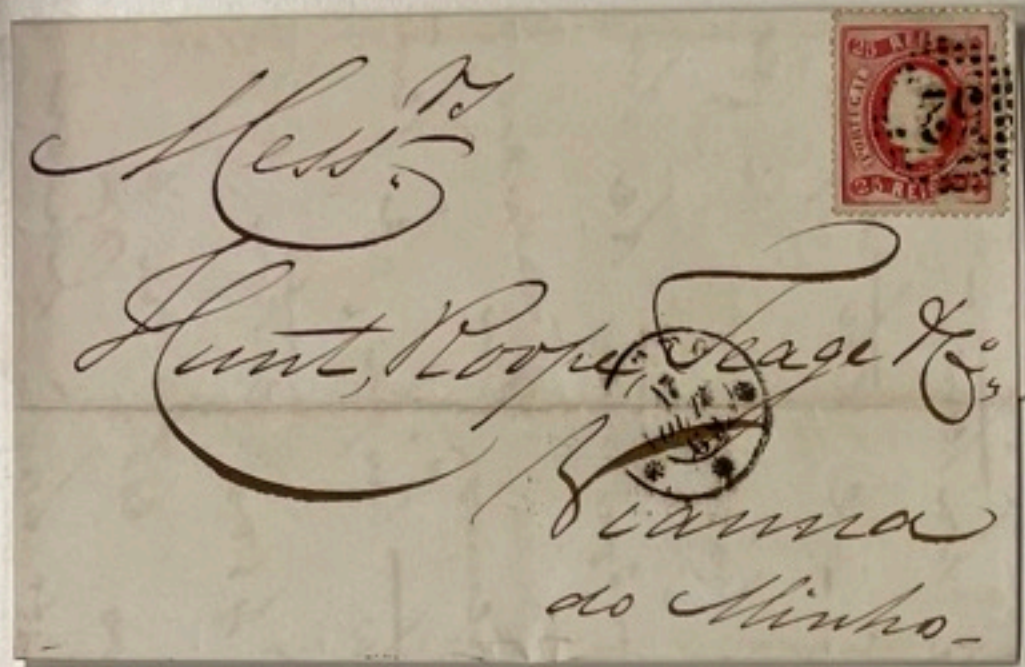 25 REIS
PORTUGAL
25 REIS
Messrs.
Hunt, Roope, Teage & Co.,
Vianna
do Minho-